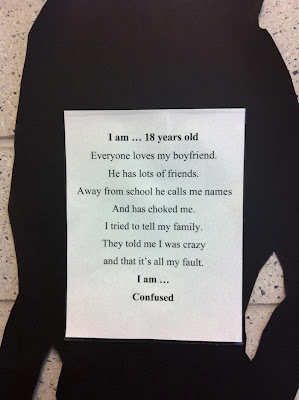 I am … 18 years old
Everyone loves my boyfriend.
He has lots of friends.
Away from school he calls me names
And has choked me.
I tried to tell my family.
They told me I was crazy
and that it's all my fault.
I am …
Confused